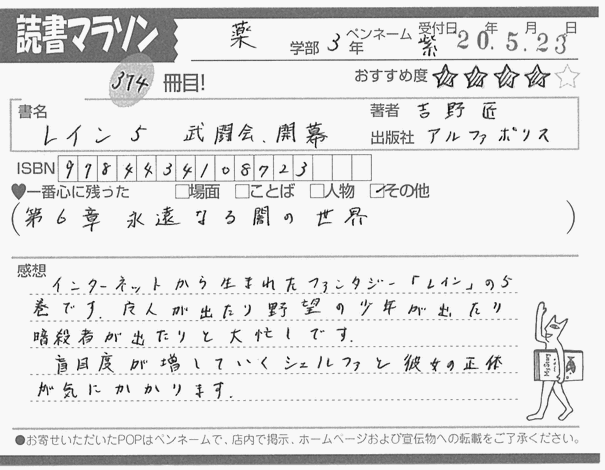 読書マラソン
薬 学部 3年 ペンネーム 紫 受付日 20年5月23日
374 冊目! おすすめ度 ★★★★☆
書名 著者 吉野 匠
レイン5 武闘会、開幕 出版社 アルファポリス
ISBN 9784434108723
♥一番心に残った □場面 □ことば □人物 ☑その他
(第6章 永遠なる闇の世界)
感想
インターネットから生まれたファンタジー「レイン」の5
巻です。友人が出たり野望の少年が出たり
暗殺者が出たりと大忙しです。
盲目度が増していくシェルファと彼女の正体
が気にかかります。
●お寄せいただいたPOPはペンネームで、店内で掲示、ホームページおよび宣伝物への転載をご了承ください。